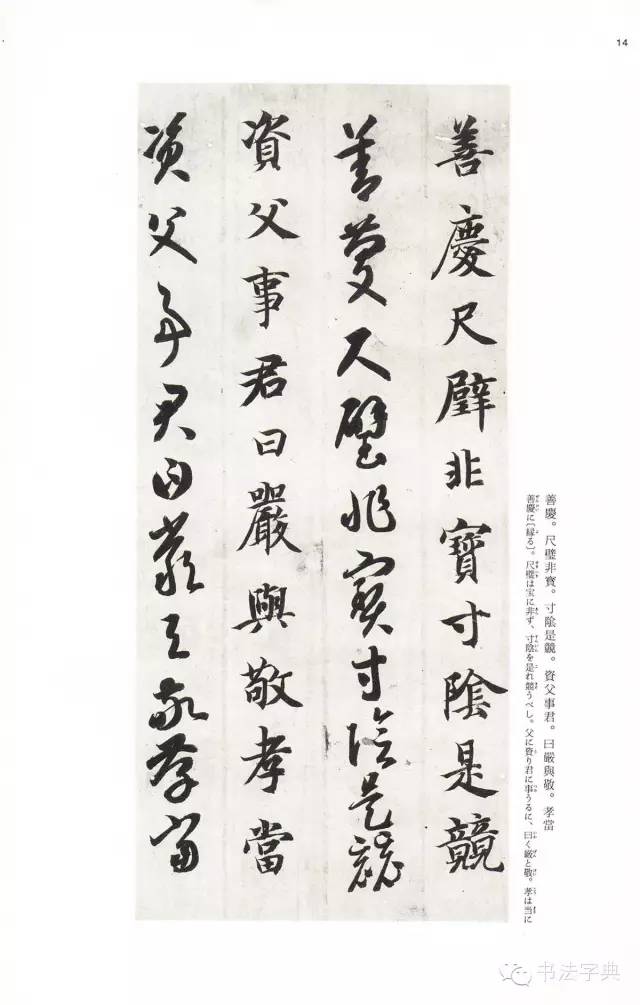 14
善慶。尺璧非寶。寸陰是競。資父事君。曰嚴與敬。孝當
善慶に〔縁る〕。尺璧は宝に非ず、寸陰を是れ競うべし。父に資り君に事うるに、曰く厳と敬。孝は当に
善慶尺璧非寶寸陰是競
善慶尺璧非寶寸陰是競
資父事君曰嚴與敬孝當
資父事君曰嚴與敬孝當
书法字典